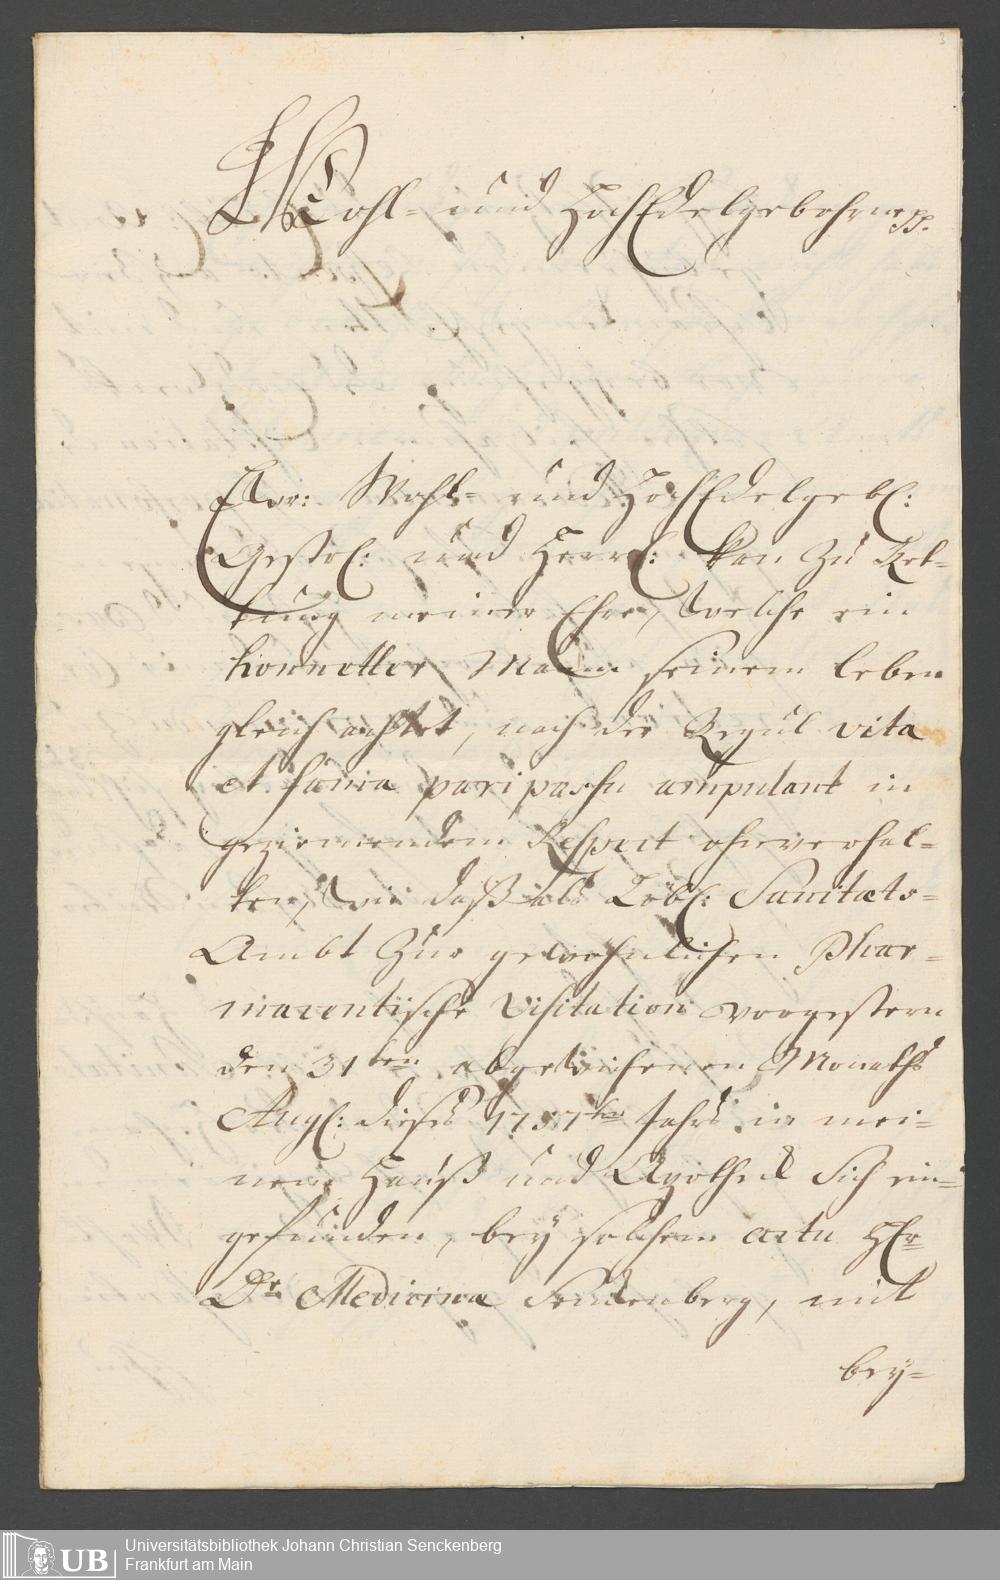 3
Wohl- und HochEdelgebohrne pp.
Ewr: Wohl- und HochEdelgebl:
Gestrl: und Herrl: kan zu Ret-
tung meiner Ehre, welche ein
honnetter Mann seinem leben
gleich achtet, nach der Regul vita
et fama pari passu ampulant in
geziemendem Respect ohnverhal-
ten, wie daß als Löbl: Sanitæts-
Ambt zur gewöhnlichen Phar-
maceutische Visitation vorgestern
den 31ten abgewichenen Monaths
Augl: dieses 1757ten Jahrs in mei-
nem Hauß und Apotheck sich ein-
gefunden, bey solchem actu HEr
Dr. Medicinæ Senckenberg, mit
bey-
UB
Universitätsbibliothek Johann Christian Senckenberg
Frankfurt am Main